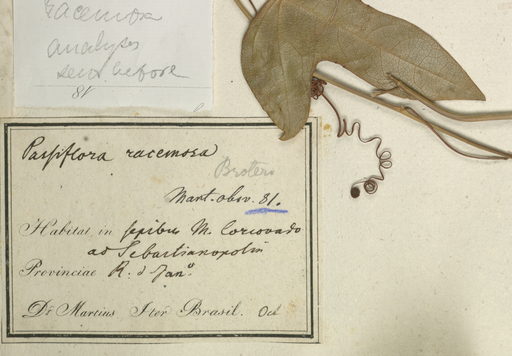 racemosa
analysis
81
Passiflora racemosa
Broteri
Mart. obsv. 81.
Habitat in sepibus M. Corcovado
ad Sebastianopolin
Provinciae R. d Jan.º
Dr. Martius Iter Brasil. Oct